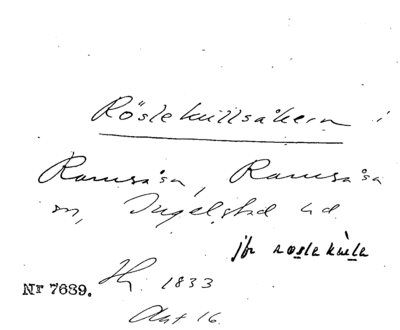 Röslekullsåkern i
Ramsåsa, Ramsåsa
sn, Ingelstad hd
jfr rosle kulle
Nr 7689. 1833
Akt 16.